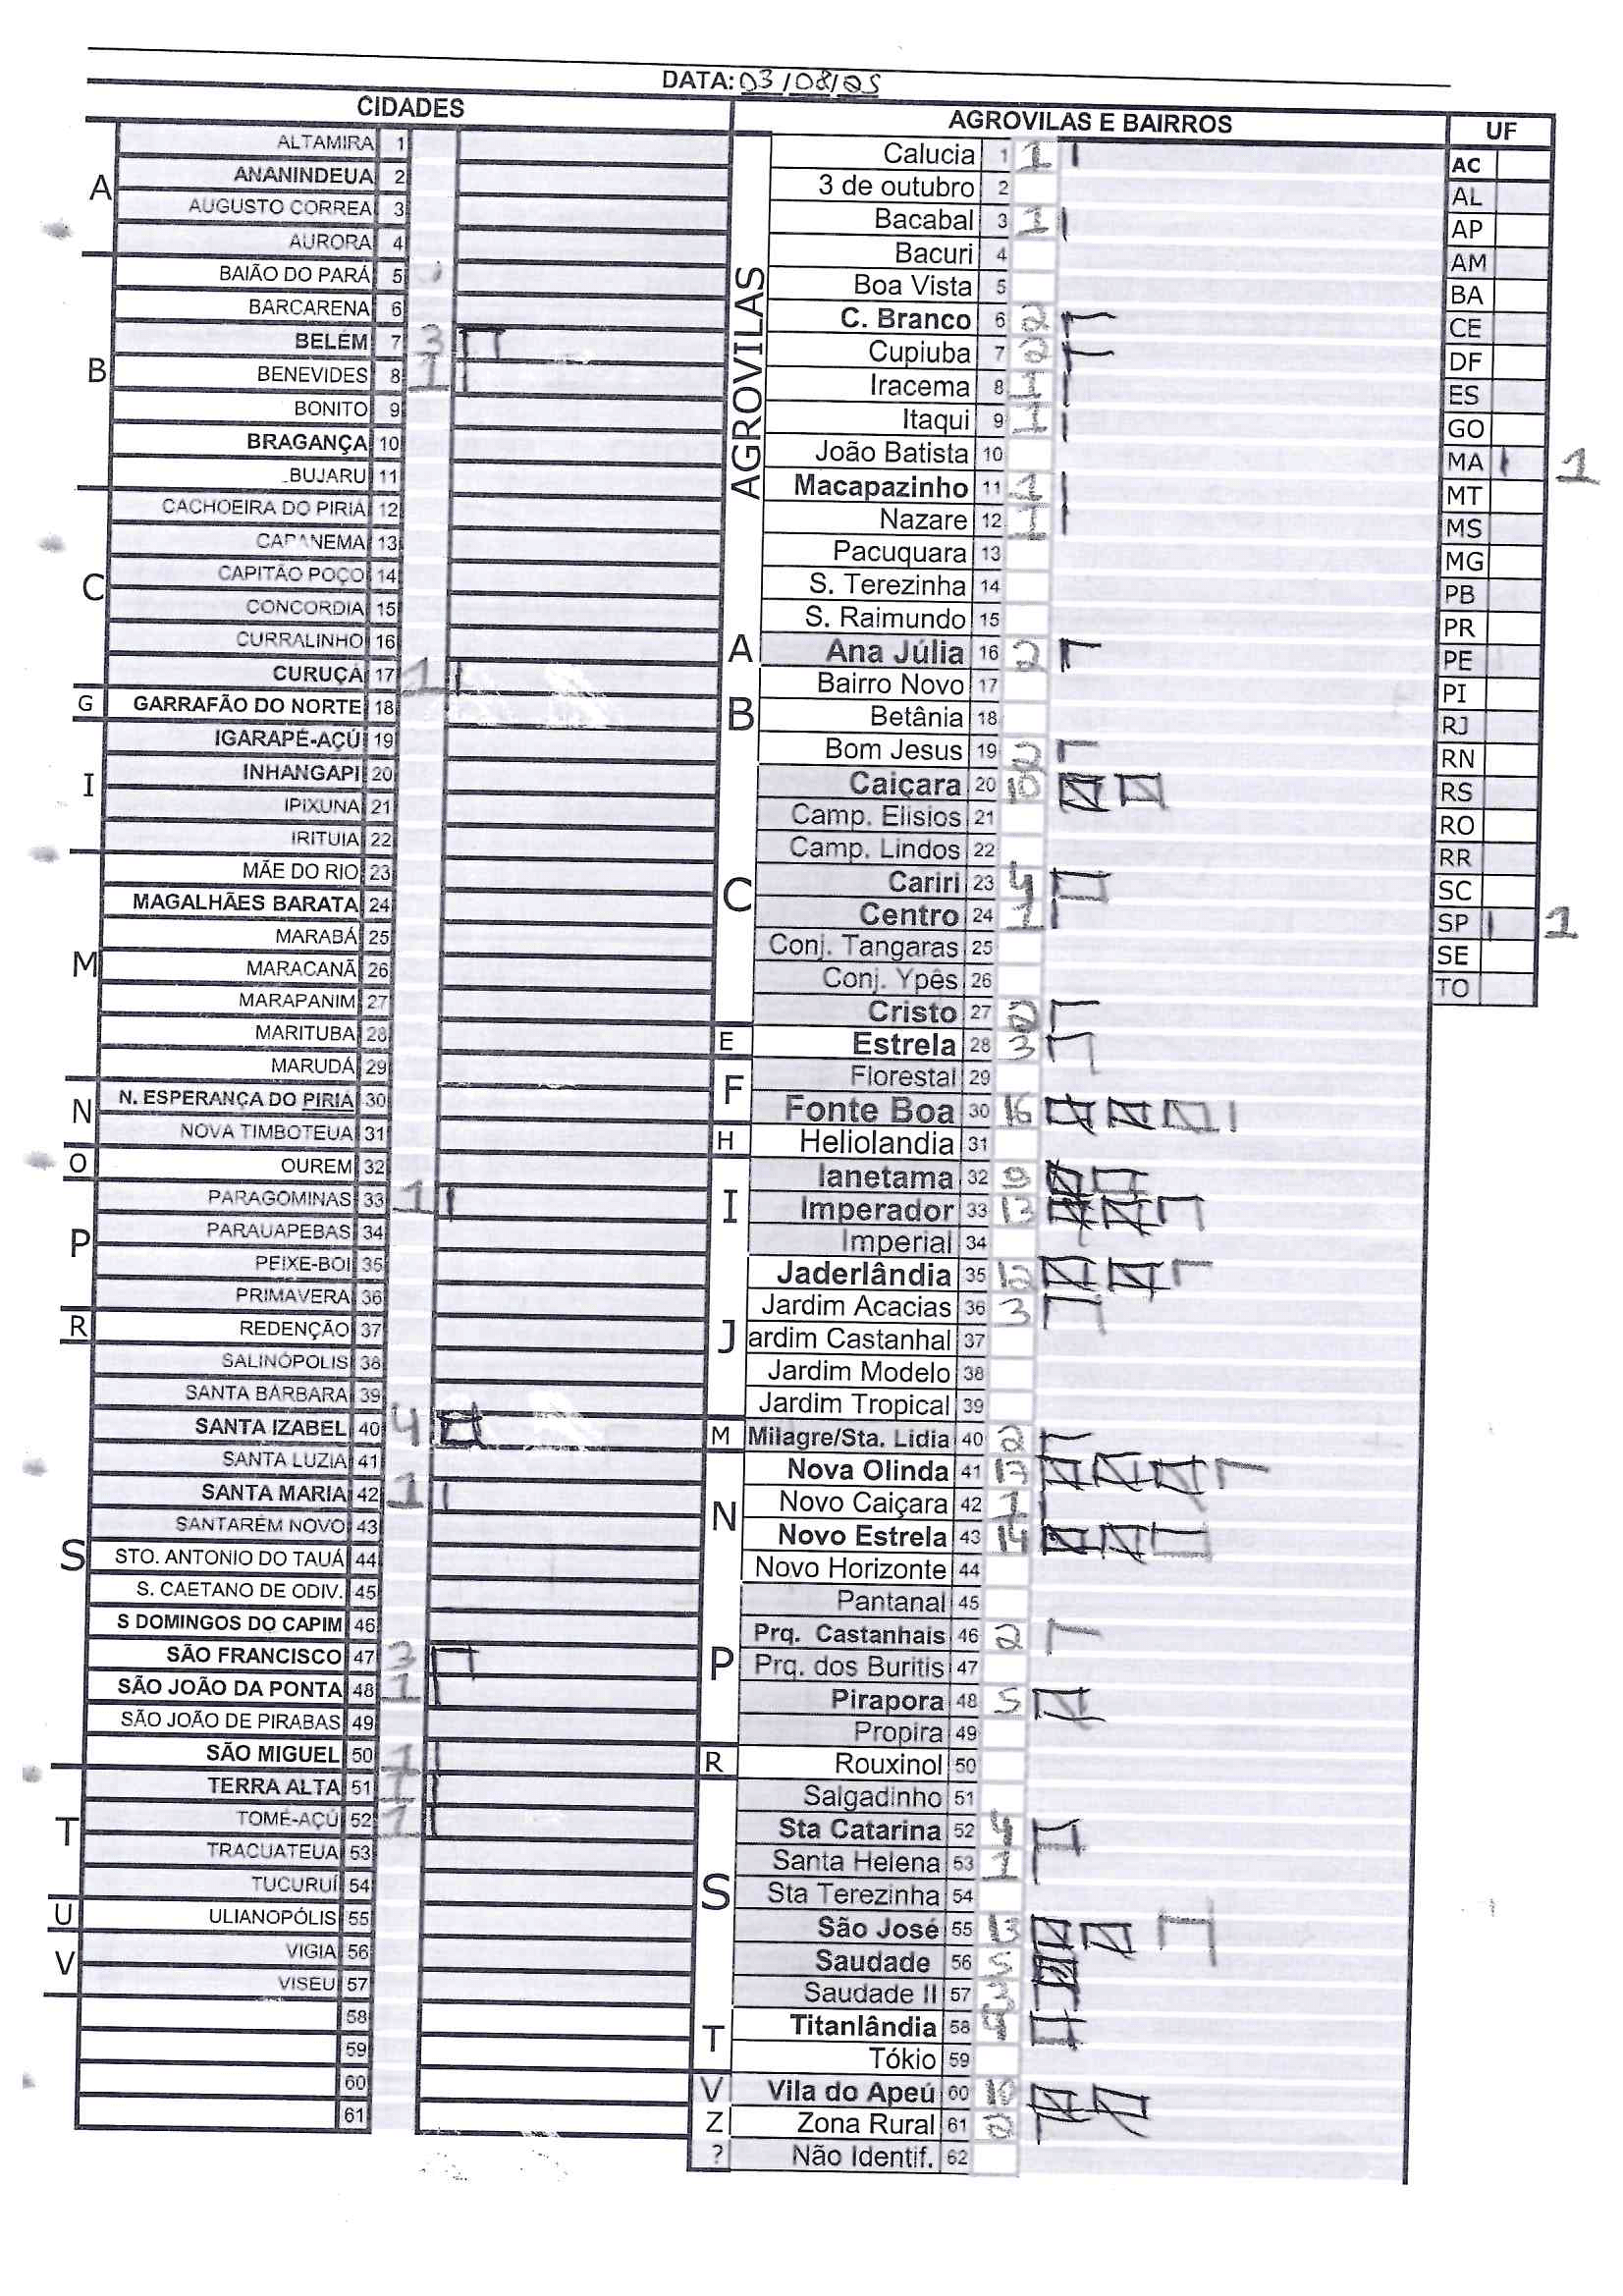 DATA: 03/08/05
CIDADES
A
ALTAMIRA 1
ANANINDEUA 2
AUGUSTO CORREA 3
AURORA 4
B
BAIÃO DO PARÁ 5
BARCARENA 6
BELÉM 7 3
BENEVIDES 8 1
BONITO 9
BRAGANÇA 10
BUJARU 11
C
CACHOEIRA DO PIRIÁ 12
CAPANEMA 13
CAPITÃO POÇO 14
CONCORDIA 15
CURRALINHO 16
CURUÇÁ 17 1
G
GARRAFÃO DO NORTE 18
I
IGARAPÉ-AÇÚ 19
INHANGAPI 20
IPIXUNA 21
IRITUIA 22
M
MÃE DO RIO 23
MAGALHÃES BARATA 24
MARABÁ 25
MARACANÃ 26
MARAPANIM 27
MARITUBA 28
MARUDÁ 29
N
N. ESPERANÇA DO PIRIÁ 30
NOVA TIMBOTEUA 31
O
OUREM 32
P
PARAGOMINAS 33 1
PARAUAPEBAS 34
PEIXE-BOI 35
PRIMAVERA 36
R
REDENÇÃO 37
S
SALINÓPOLIS 38
SANTA BÁRBARA 39
SANTA IZABEL 40 4
SANTA LUZIA 41
SANTA MARIA 42 1
SANTARÉM NOVO 43
STO. ANTONIO DO TAUÁ 44
S. CAETANO DE ODIV. 45
S DOMINGOS DO CAPIM 46
SÃO FRANCISCO 47 3
SÃO JOÃO DA PONTA 48 1
SÃO JOÃO DE PIRABAS 49
SÃO MIGUEL 50 1
T
TERRA ALTA 51 1
TOMÉ-AÇÚ 52 1
TRACUATEUA 53
TUCURUÍ 54
U
ULIANOPÓLIS 55
V
VIGIA 56
VISEU 57
58
59
60
61
AGROVILAS E BAIRROS
AGROVILAS
Calucia 1 1
3 de outubro 2
Bacabal 3 1
Bacuri 4
Boa Vista 5
C. Branco 6 2
Cupiuba 7 2
Iracema 8 1
Itaqui 9 1
João Batista 10
Macapazinho 11 1
Nazare 12 1
Pacuquara 13
S. Terezinha 14
S. Raimundo 15
A
Ana Júlia 16 2
B
Bairro Novo 17
Betânia 18
Bom Jesus 19 2
C
Caiçara 20 10
Camp. Elisios 21
Camp. Lindos 22
Cariri 23 4
Centro 24 1
Conj. Tangaras 25
Conj. Ypês 26
Cristo 27 2
E
Estrela 28 3
F
Florestal 29
Fonte Boa 30 16
H
Heliolandia 31
I
Ianetama 32 9
Imperador 33 13
Imperial 34
J
Jaderlândia 35 12
Jardim Acacias 36 3
ardim Castanhal 37
Jardim Modelo 38
Jardim Tropical 39
M
Milagre/Sta. Lidia 40 2
N
Nova Olinda 41 17
Novo Caiçara 42 1
Novo Estrela 43 14
Novo Horizonte 44
P
Pantanal 45
Prq. Castanhais 46 2
Prq. dos Buritis 47
Pirapora 48 5
Propira 49
R
Rouxinol 50
S
Salgadinho 51
Sta Catarina 52
Santa Helena 53 1
Sta Terezinha 54
São José 55 13
Saudade 56 5
Saudade II 57
T
Titanlândia 58
Tókio 59
V
Vila do Apeú 60 10
Z
Zona Rural 61 2
?
Não Identif. 62
UF
AC
AL
AP
AM
BA
CE
DF
ES
GO
MA 1
MT
MS
MG
PB
PR
PE
PI
RJ
RN
RS
RO
RR
SC
SP 1
SE
TO